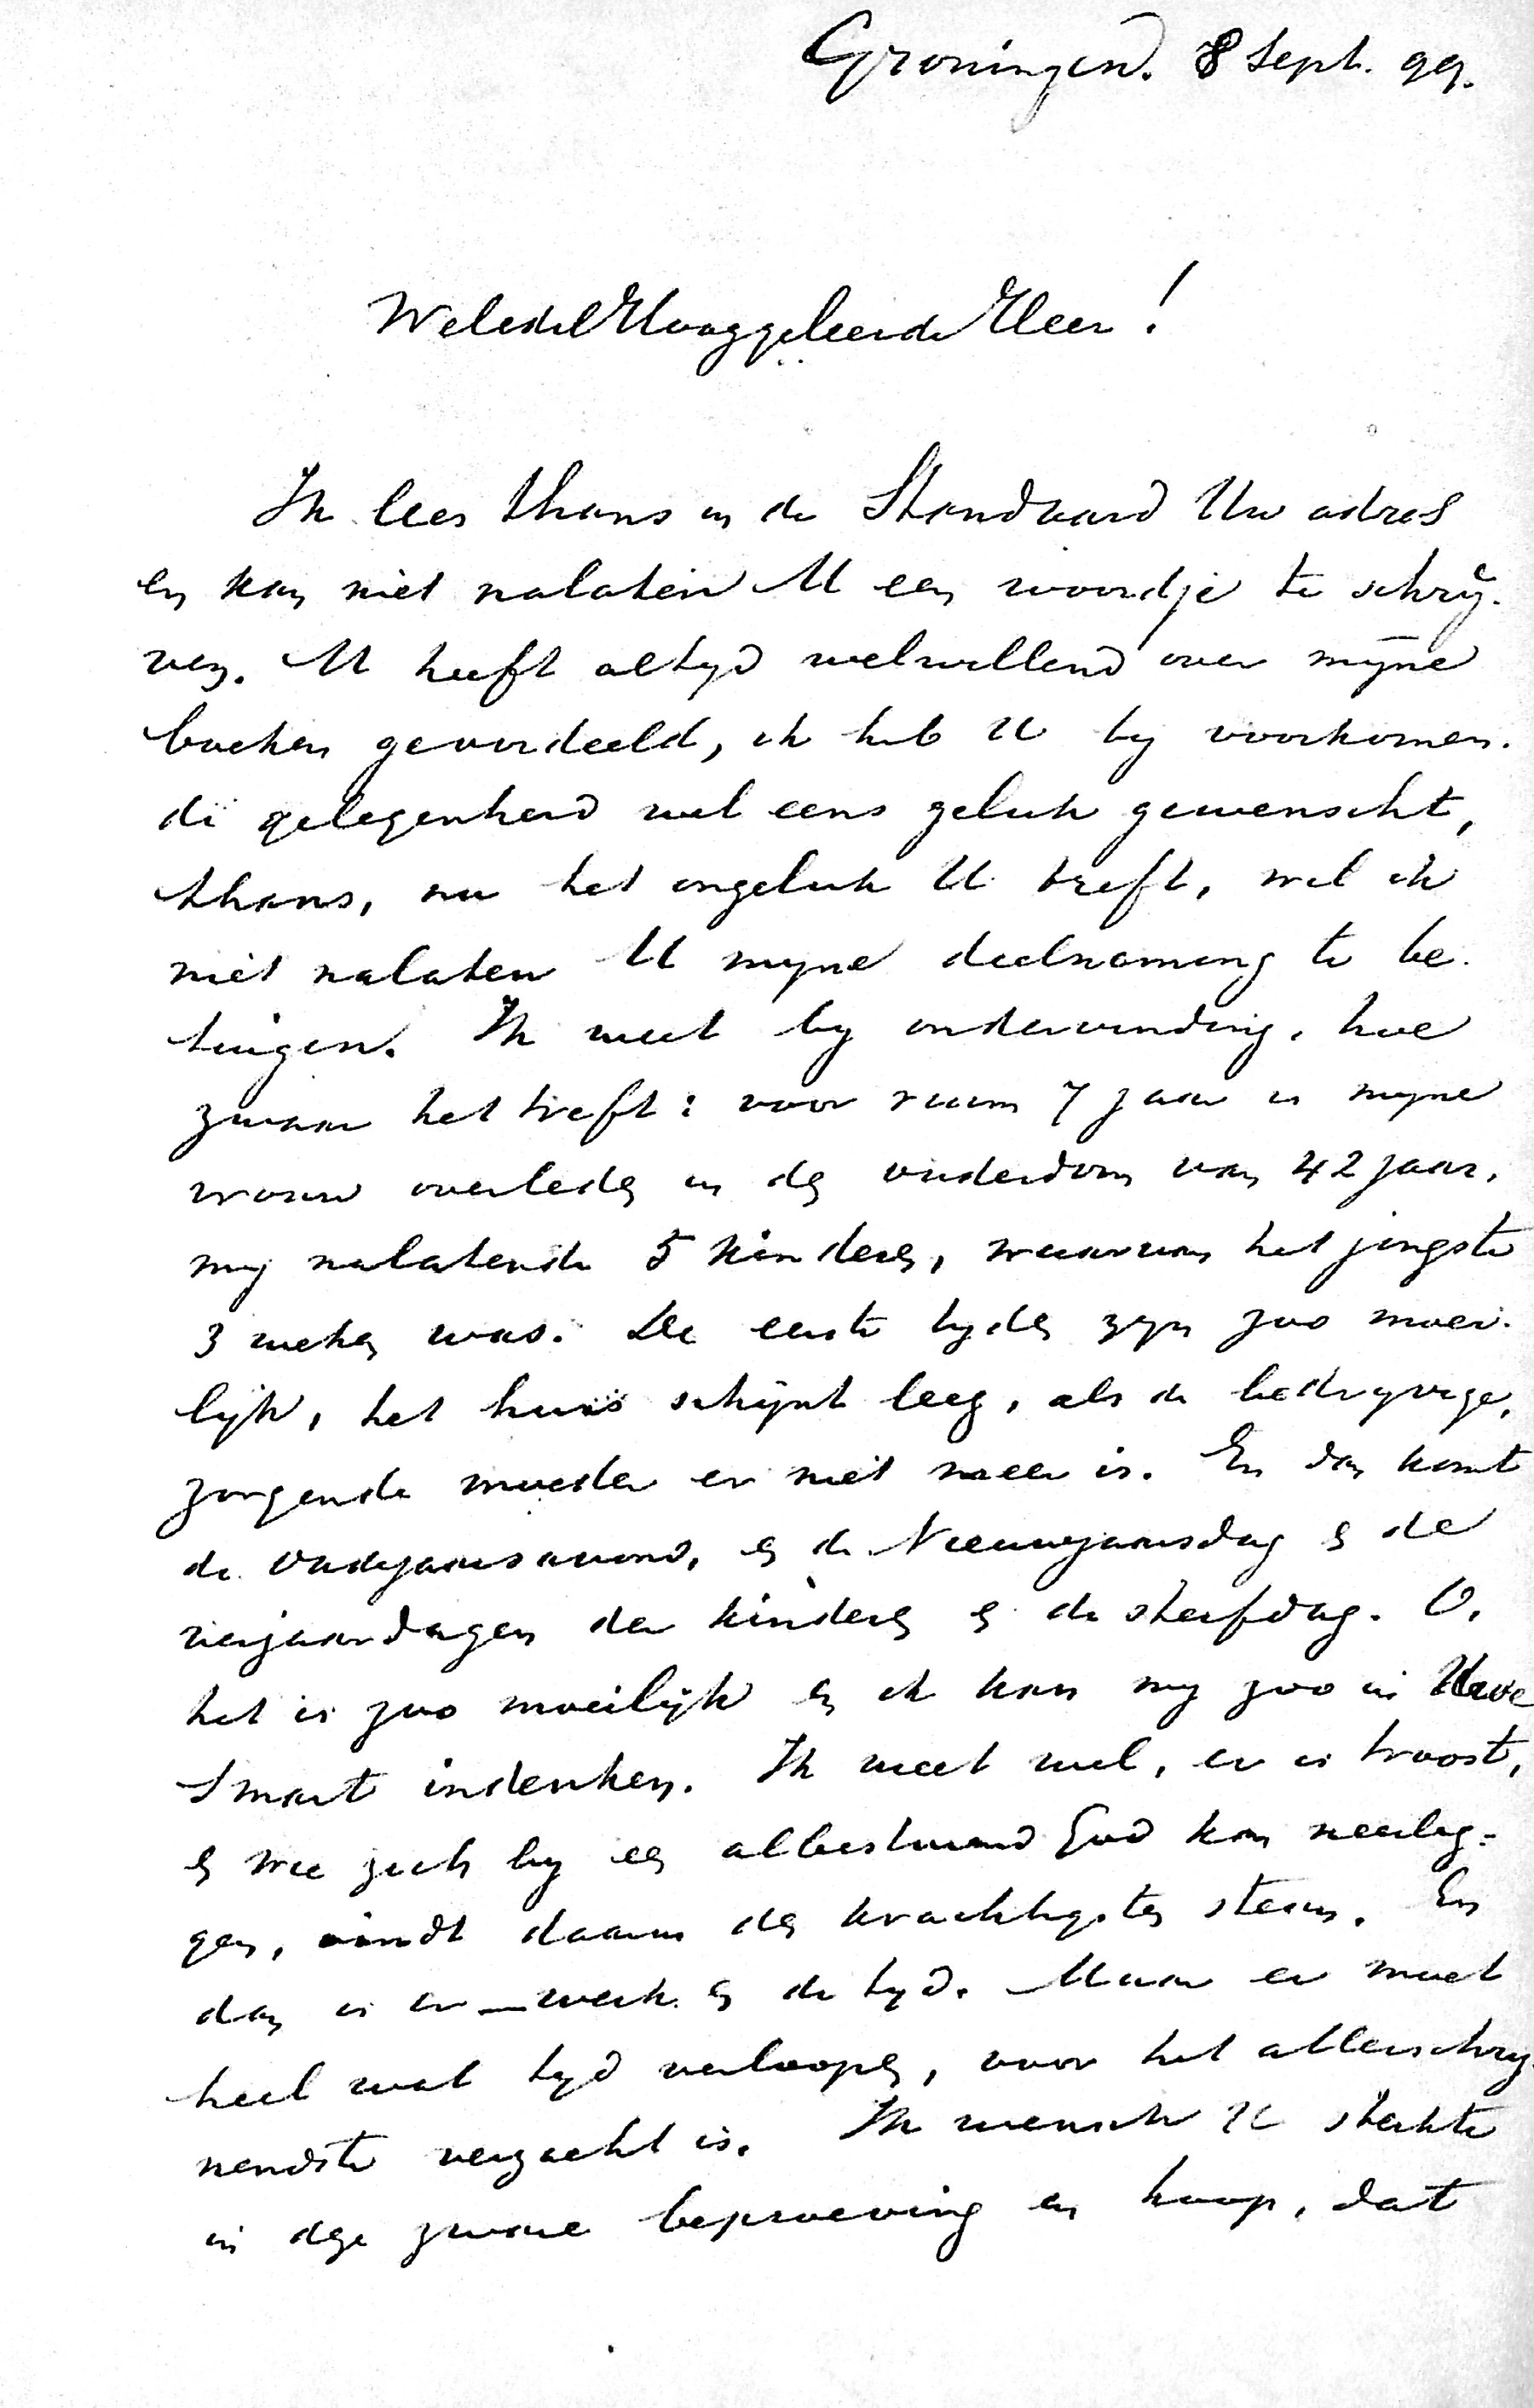 Groningen. 8 Sept. 99.
WeledelHooggeleerde Heer!
Ik lees thans in de Standaard Uw adres
en kan niet nalaten U een woordje te schrij-
ven. U heeft altijd welwillend over mijne
boeken geoordeeld, ik heb U bij voorkomen-
de gelegenheid wel eens geluk gewenscht,
thans, nu het ongeluk U treft, wil ik
niet nalaten U mijne deelneming te be-
tuigen. Ik weet bij ondervinding, hoe
zwaar het treft: voor ruim 7 jaar is mijne
vrouw overleden in den ouderdom van 42 jaar,
mij nalatende 5 kinderen, waarvan het jongste
3 weken was. De eerste tijden zijn zoo moei-
lijk, het huis schijnt leeg, als de bedrijvige,
zorgende moeder er niet meer is. En dan komt
de Oudejaarsavond, en de Nieuwjaarsdag en de
verjaardagen der kinderen en de sterfdag. O,
het is zoo moeilijk en ik kan mij zoo in Uwe
smart indenken. Ik weet wel, er is troost,
en wie zich bij een albesturend God kan neerleg-
gen, vindt daarin den krachtigsten steun. En
dan is er – werk en de tijd. Maar er moet
heel wat tijd verloopen, voor het allerschrij-
nendste verzacht is. Ik wensch U sterkte
in deze zware beproeving en hoop, dat